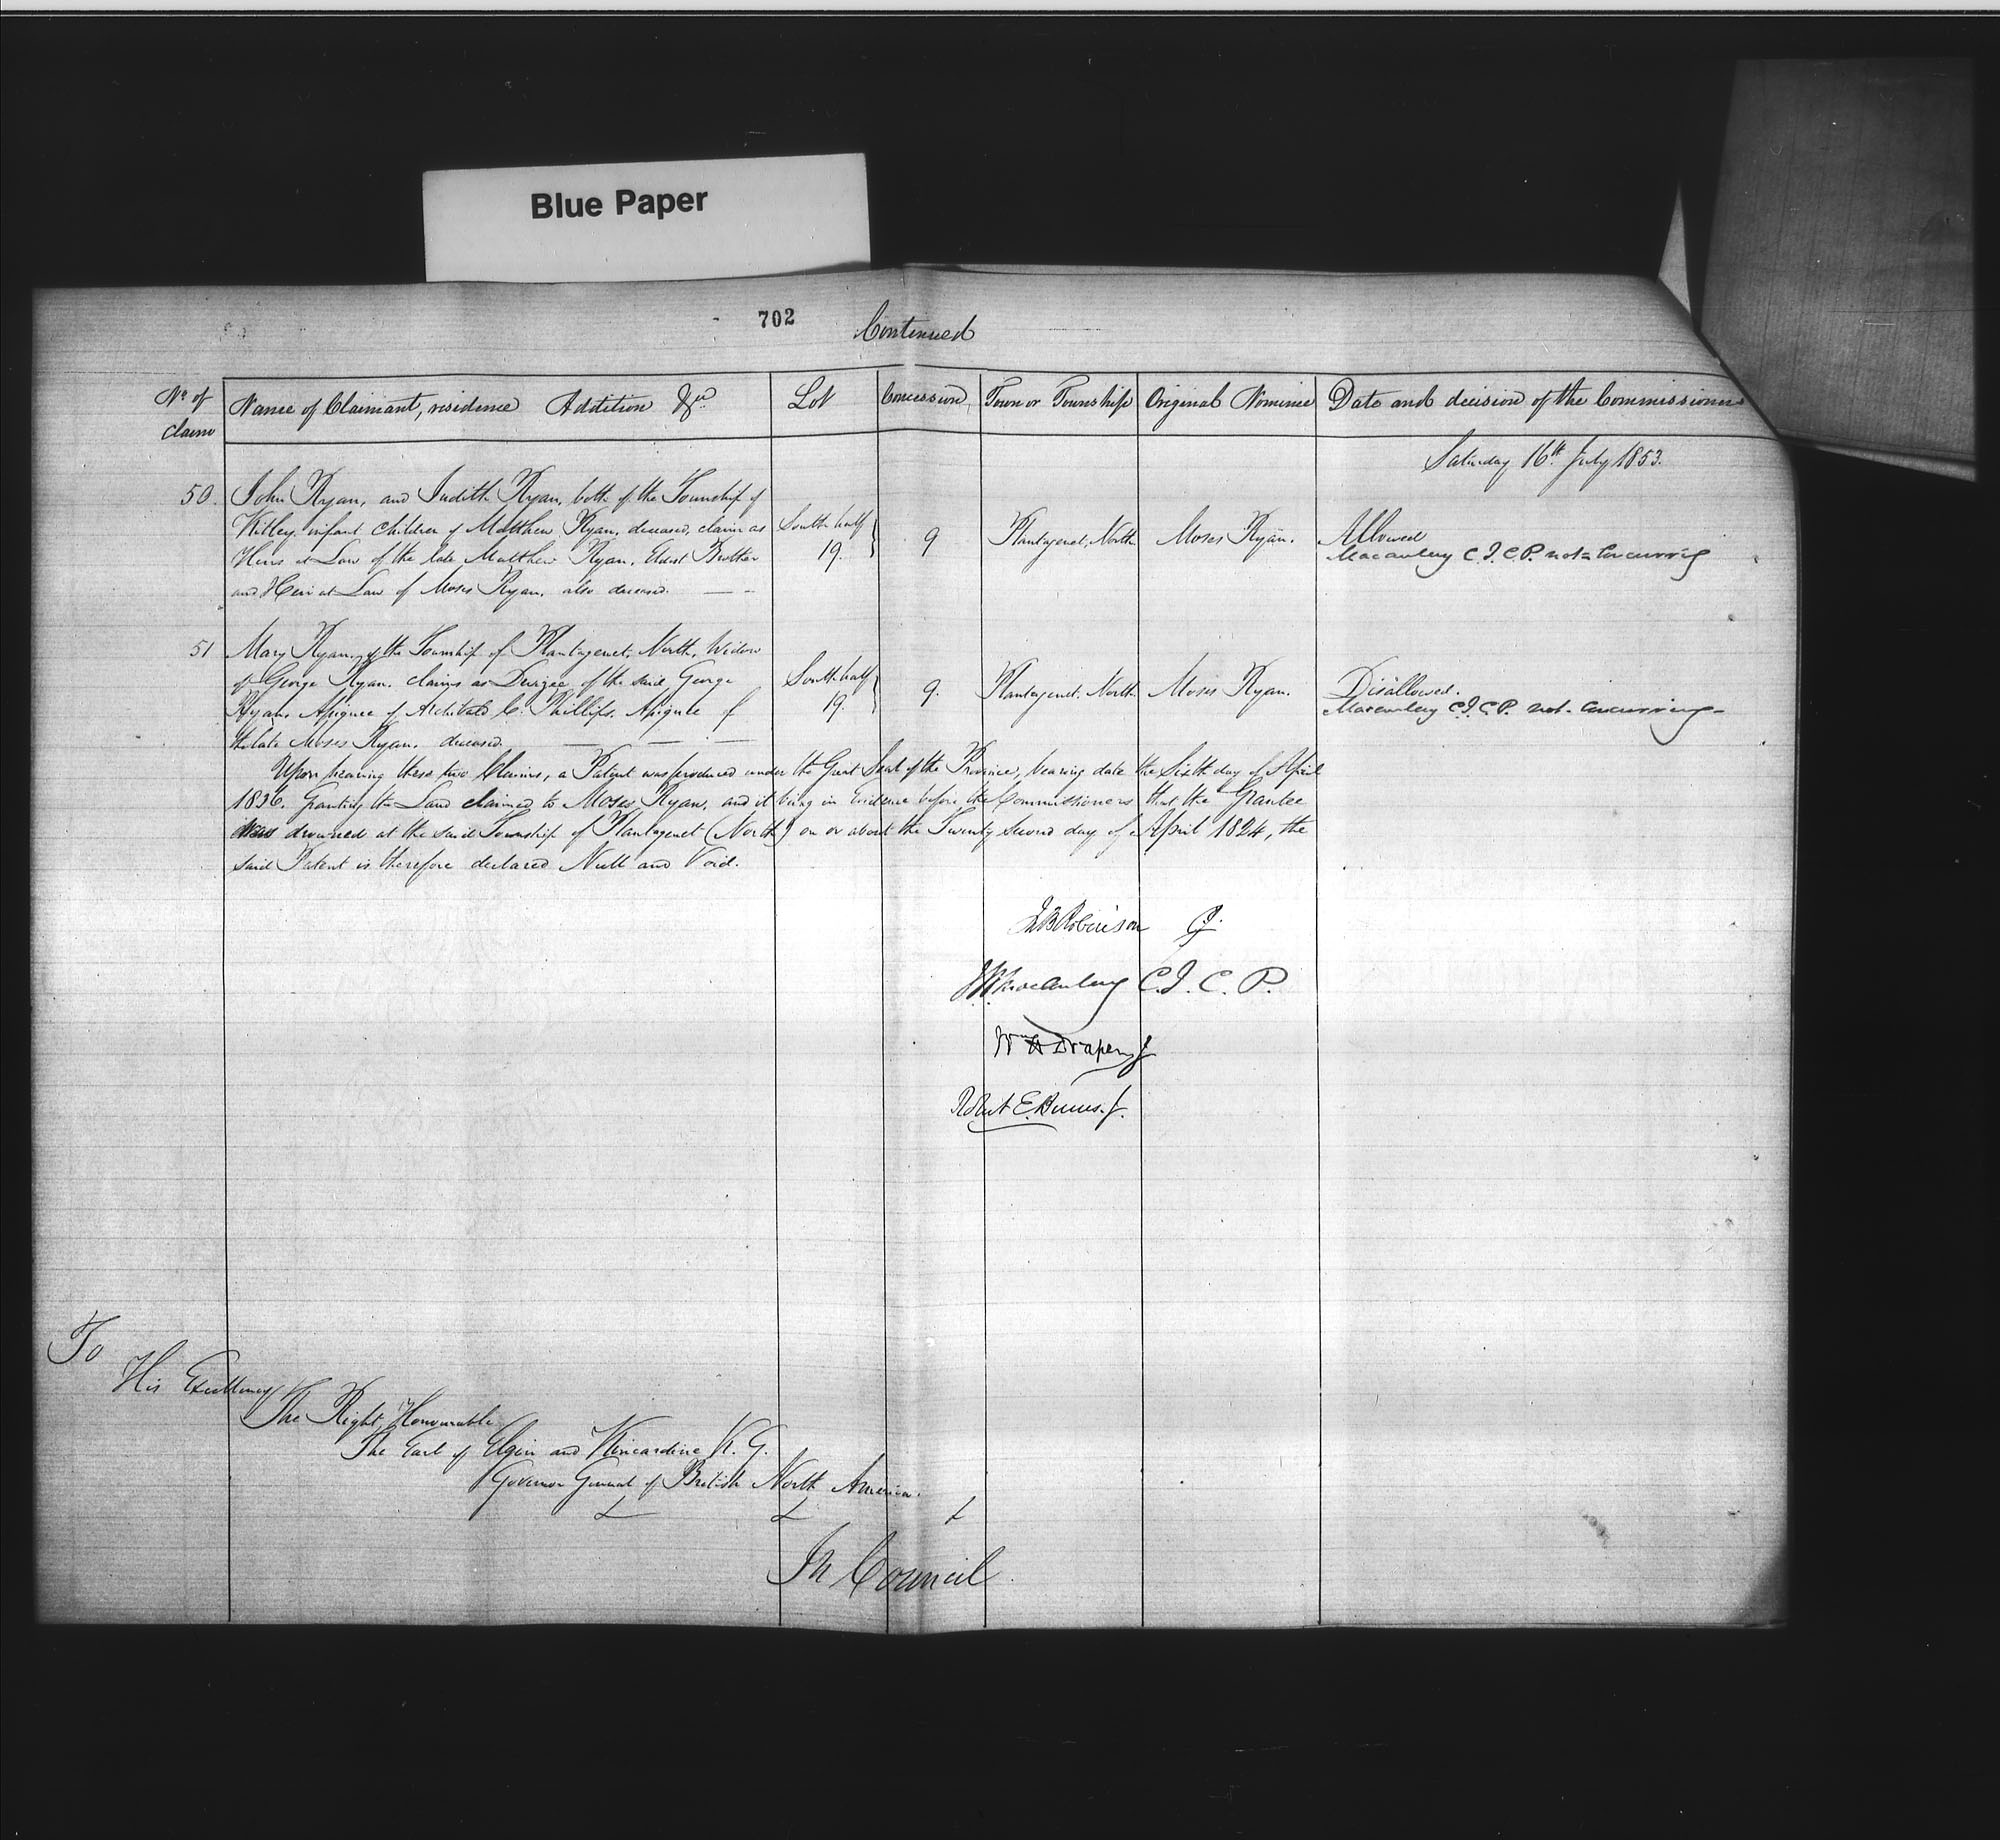 Blue Paper
702
Continued
No of
Claim
Name of Claimant, residence Addition &ca
Lot
Concession
Town or Township
Original Nominee
Date and decision of the Commissioners
Saturday 16th July 1853.
50.
John Ryan, and Judith Ryan, both of the Township of
Kitley infant children of Matthew Ryan, deceased, claim as
Heirs at Law of the late Matthew Ryan, Eldest Brother
and Heir at Law of Moses Ryan, also deceased.
South half
19.
9
Plantagenet, North
Moses Ryan.
Allowed
Macaulay C.J.C.P. not concurring
51
Mary Ryan, of the Township of Plantagenet, North, Widow
of George Ryan, claims as Devizee of the said George
Ryan, Assignee of Archibald C. Phillips, Assignee of
the late Moses Ryan, deceased.
South half
19.
9.
Plantagenet. North
Moses Ryan.
Disallowed.
Macaulay C.J.C.P. not concurring
Upon hearing these two Claims, a Patent was produced under the Great Seal of the Province, bearing date the Sixth day of April
1836. Granting the Land claimed to Moses Ryan, and it being in Evidence before the Commissioners that the Grantee
was drowned at the said Township of Plantagenet (North) on or about the Twenty second day of April 1824, the
said Patent is therefore declared Null and Void.
Jno B Robinson CJ.
J B Macaulay C.J.C.P.
Wm H Draper J
Robert E. Burns. J.
To
His Excellency
The Right Honourable
The Earl of Elgin and Kincardine K. G.
Governor General of British North America.
In Council